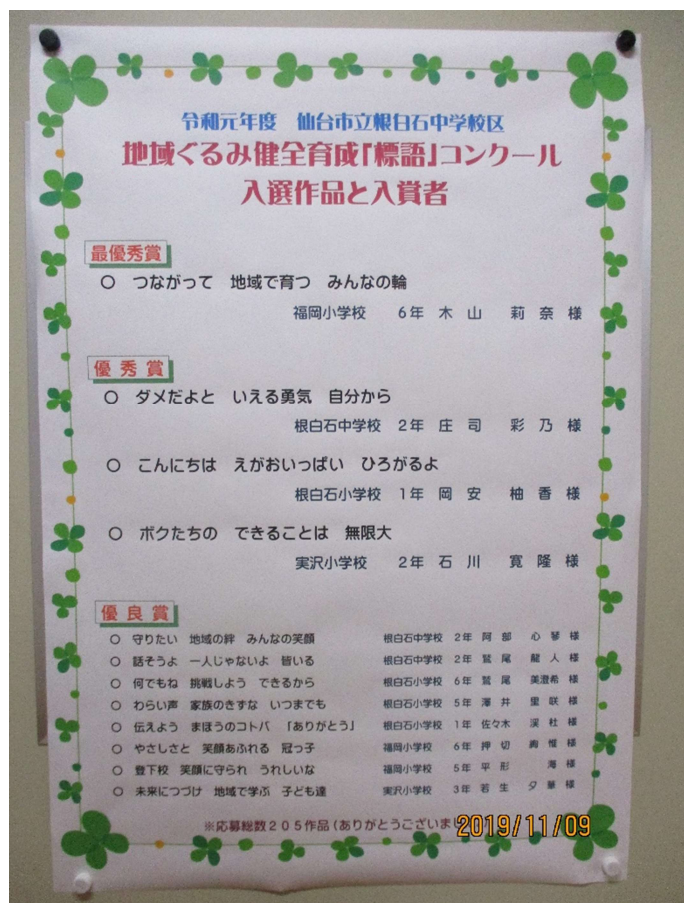 令和元年度　仙台市立根白石中学校区
地域ぐるみ健全育成「標語」コンクール
入選作品と入賞者
最優秀賞
○　つながって　地域で育つ　みんなの輪
福岡小学校　６年　木　山　莉　奈　様
優秀賞
○　ダメだよと　いえる勇気　自分から
根白石中学校　２年　庄　司　彩　乃　様
○　こんにちは　えがおいっぱい　ひろがるよ
根白石小学校　１年　岡　安　柚　香　様
○　ボクたちの　できることは　無限大
実沢小学校　２年　石　川　寛　隆　様
優良賞
○　守りたい　地域の絆　みんなの笑顔　根白石中学校　２年　阿　部　心　琴　様
○　話そうよ　一人じゃないよ　皆いる　根白石中学校　２年　鷲　尾　人　様
○　何でもね　挑戦しよう　できるから　根白石小学校　６年　鷲　尾　美澄希　様
○　わらい声　家族のきずな　いつまでも　根白石小学校　５年　澤　井　里　咲　様
○　伝えよう　まほうのコトバ　「ありがとう」　根白石小学校　１年　佐々木　渓　杜　様
○　やさしさと　笑顔あふれる　冠っ子　福岡小学校　６年　押　切　惟　様
○　登下校　笑顔に守られ　うれしいな　福岡小学校　５年　平　形　海　様
○　未来につづけ　地域で学ぶ　子ども達　実沢小学校　３年　若　生　夕　華　様
※応募総数２０５作品（ありがとうございまし
2019/11/09